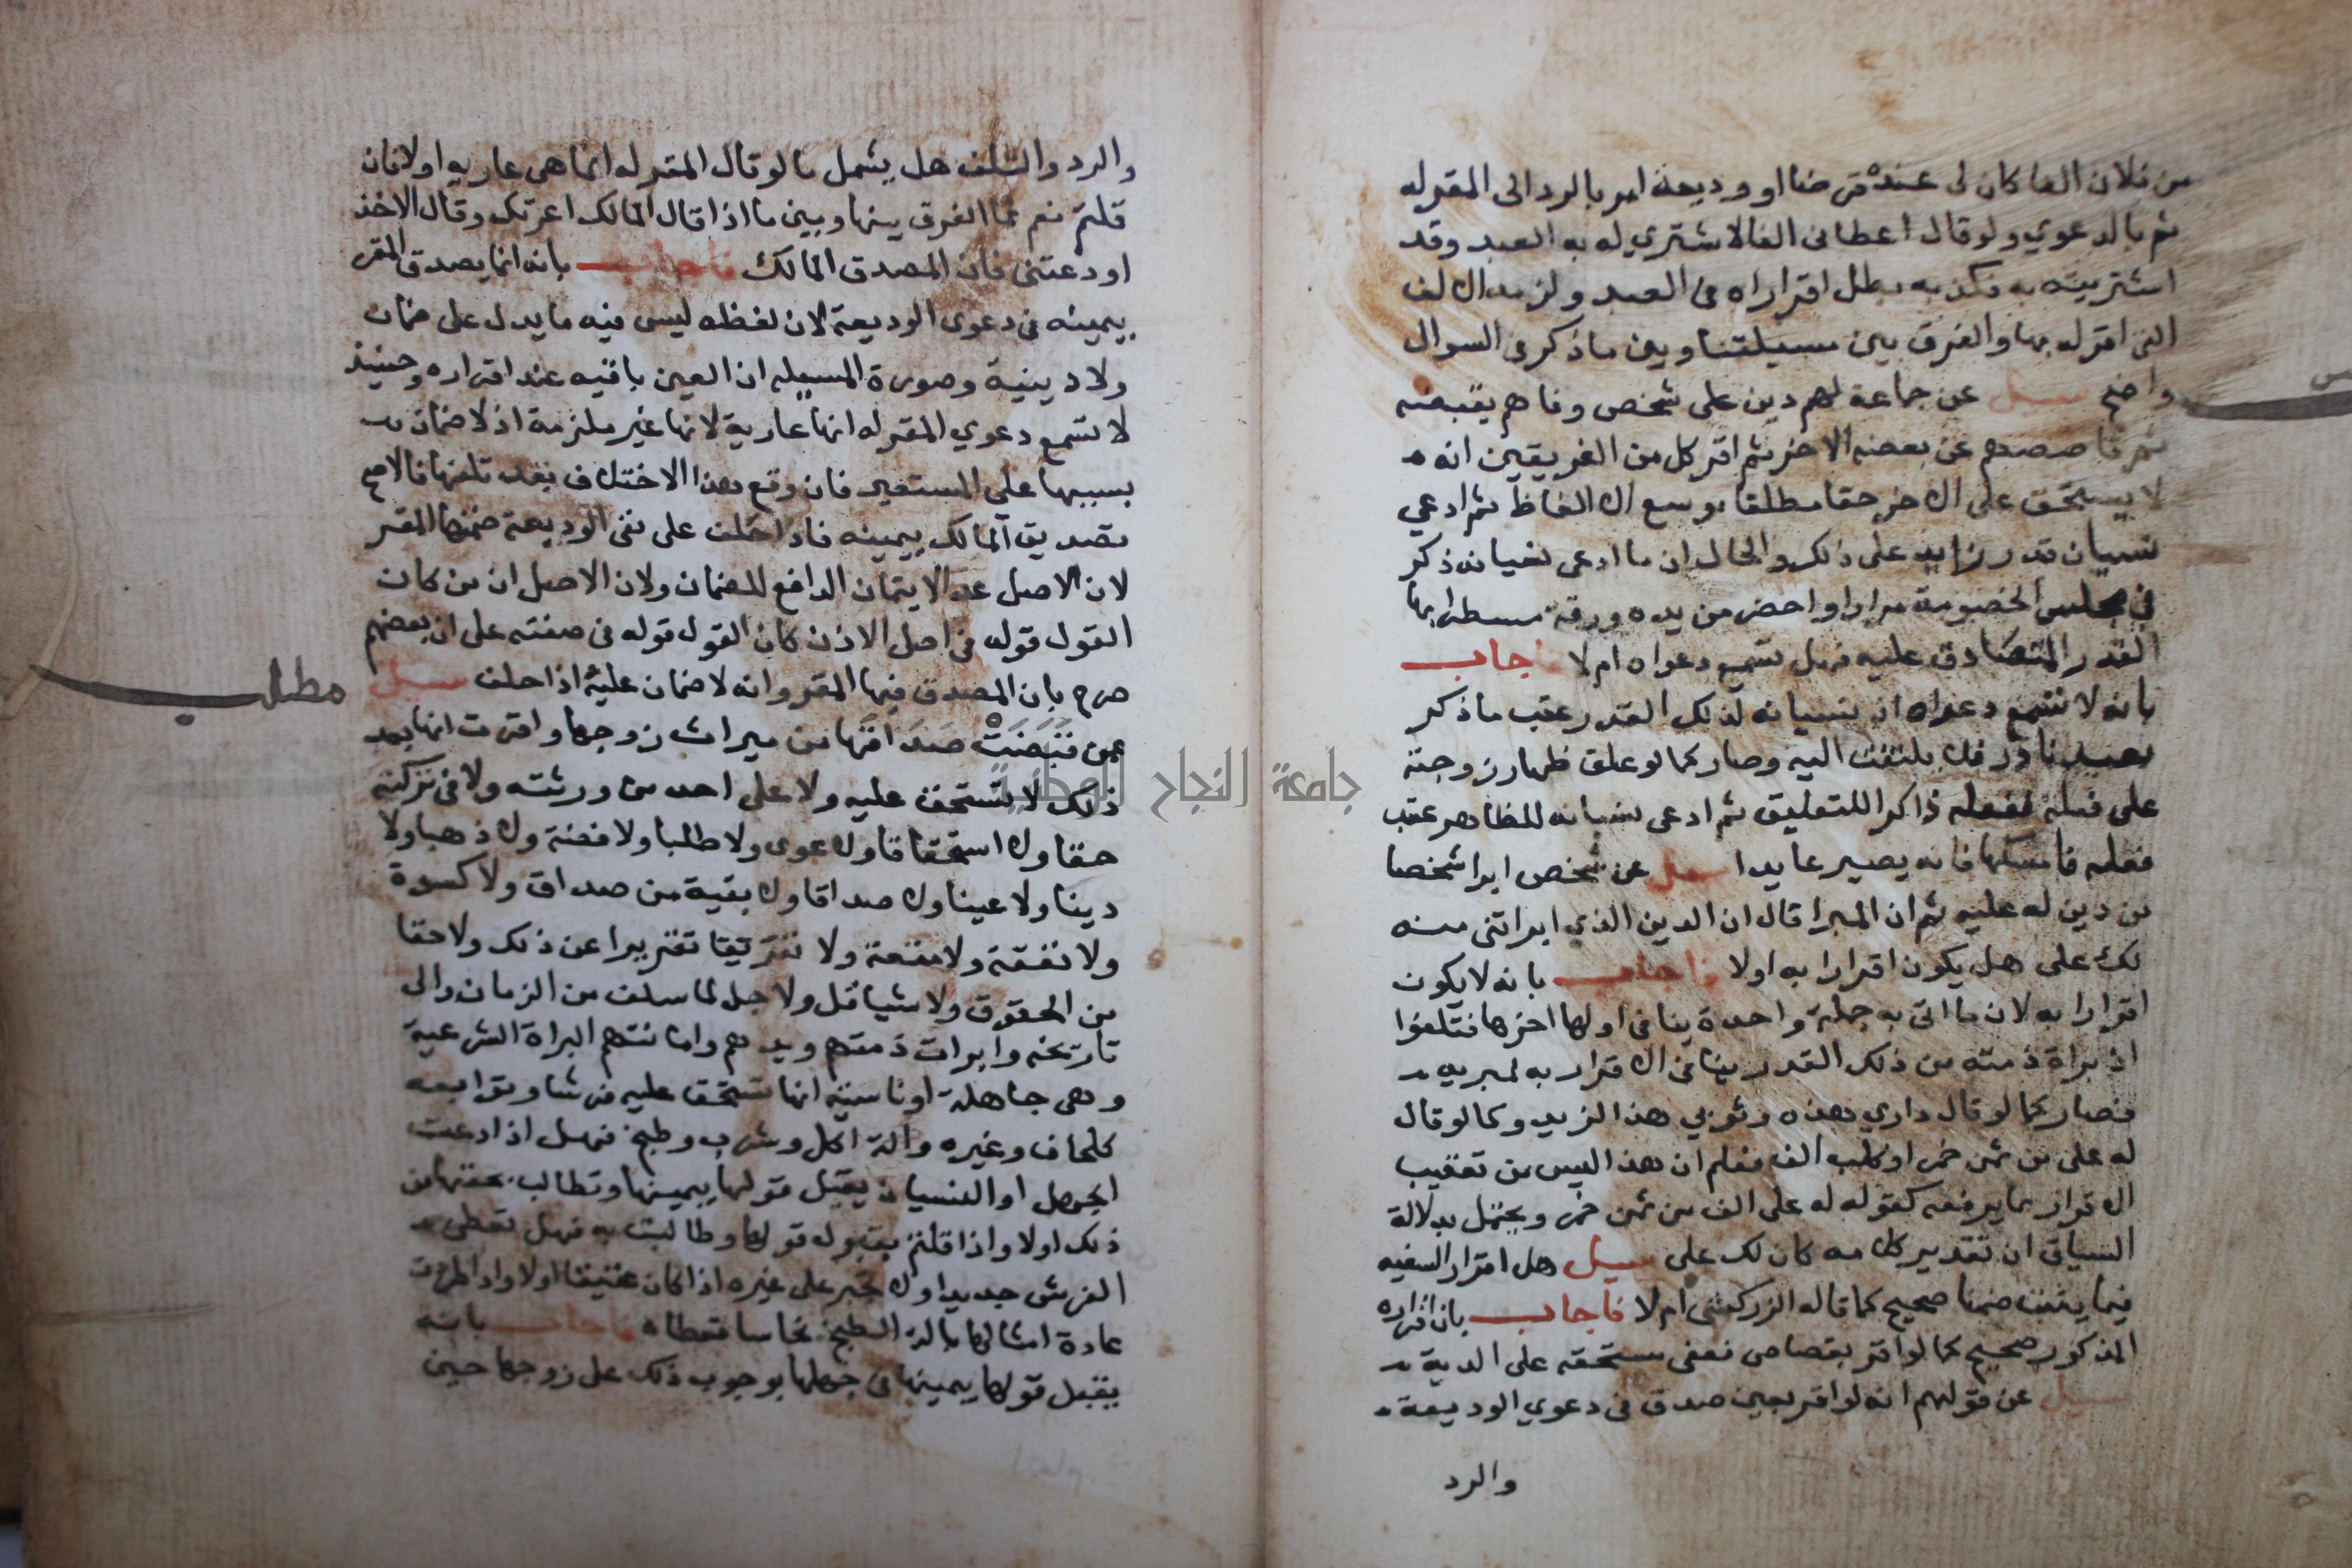 من فلان الفا كان لى عنده قرضا او وديعة امر بالرد الى المقر له
ثم بالدعوي ولو قال اعطانى الفا لاشتري له به العبد وقد
اشتريته به فكذبه بطل اقراره فى العبد ولزمه الالف
التى اقر له بها والفرق بين مسيلتنا وبين ما ذكر فى السوال
واضح سيل عن جماعة لهم دين على شخص وفاهم بقبضه
صدهم عن بعضه الاخر ثم اقر كل من الفريقين انه
لا يستحق على الاخر حقا مطلقا بوسع الالفاظ ثم ادعي
نسيان قدر زايد على ذلك والحال ان ما ادعى نسيانه ذكر
في مجلس الخصومة مرارا واحضر من يده ورقة مسطرا بها
القدر المتصادق عليه فهل تسمع دعواه ام لا فاجاب
بانه لا تسمع دعواه اذ نسيانه لذلك القدر عقب ما ذكر
بعيد نادر فلا يلتفت اليه وصار كما لو علق ظهار زوجته
على فعله ففعله ذاكرا للتعليق ثم ادعى نسيانه للظاهر عقب
فعله فامسكها فانه يصير عايدا سيل عن شخص ابرا شخصا
من دين له عليه ثم ان المبرا قال ان الدين الذي ابراتنى منه
لك على هل يكون اقرارا به اولا فاجاب بانه لا يكون
اقرارا به لان ما اتى به جملة واحدة ينافى اولها اخرها فتلغوا
اذ براة ذمته من ذلك القدر ينافى الاقرار به لمبريه
فصار كما لو قال داري هذه وثوبي هذا لزيد وكما لو قال
له على من ثمن خمر او كلب الف فعلم ان هذا ليس من تعقيب
الاقرار بما يرفعه كقوله له على الف من ثمن خمر ويحتمل بدلالة
السياق ان تقدير كلامه كان لك على سيل هل اقرار السفيه
فيما يثبت ضمنا صحيح كما قاله الزركشى ام لا فاجاب بان اقراره
المذكور صحيح كما لو اقر بقصاص فعفى مستحقه على الدية
سيل عن قولهم انه لو اقر بعين صدق فى دعوي الوديعة
والرد
والرد والتلف هل يشمل ما لو قال المقر له انما هى عاريه اولا فان
قلتم نعم فما الفرق بينها وبين ما اذا قال المالك اعرتك وقال الاخذ
اودعتنى فان المصدق المالك فاجاب بانه انما يصدق المقر
بيمينه فى دعوى الوديعة لان لفظه ليس فيه ما يدل على ضمان
ولا دينية وصورة المسيله ان العين باقيه عند اقراره وحينيذ
لا تسمع دعوي المقر له انها عارية لانها غير ملزمة اذ لا ضمان
بسببها على المستعير فان وقع هذا الاختلاف بعد تلفها فالاصح
تصديق المالك بيمينه فاذا حلف على نفى الوديعة ضمنها المقر
لان الاصل عدم الايتمان الدافع للضمان ولان الاصل ان من كان
القول قوله فى اصل الاذن كان القول قوله فى صفته على ان بعضهم
صرح بان المصدق فيها المقر وانه لا ضمان عليه اذا حلف سيل
مطلب
عمن قبضت صداقها من ميراث زوجها واقرت انها بعد
ذلك لا تستحق عليه ولا على احد من ورثته ولا فى تركته
حقا ولا استحقاقا ولا دعوى ولا طلبا ولا فضة ولا ذهبا ولا
دينا ولا عينا ولا صداقا ولا بقية من صداق ولا كسوة
ولا نفقة ولا متعة ولا تقريرا عن ذلك ولا حقا
من الحقوق ولا شيا قل ولا جل لما سلف من الزمان والى
تاريخه وابرات ذمتهم ويدهم وامانتهم البراة الشرعية
وهى جاهلة او ناسية انها تستحق عليه فرشا وتوابعه
كلحاف وغيره والة اكل وشرب وطبخ فهل اذا ادعت
الجهل او النسيان يقبل قولها بيمينها وتطالب بحقها من
ذلك اولا واذا قلتم بقبول قولها وطالبت به فهل تعطى
الفرش جديدا ولا تجبر على غيره اذا كان عتيقا اولا واذا اطردت
عادة امثالها بالة الطبخ نحاسا تعطاه فاجاب بانه
يقبل قولها بيمينها فى جهلها بوجوب ذلك على زوجها حين
جامعة النجاح الوطنية